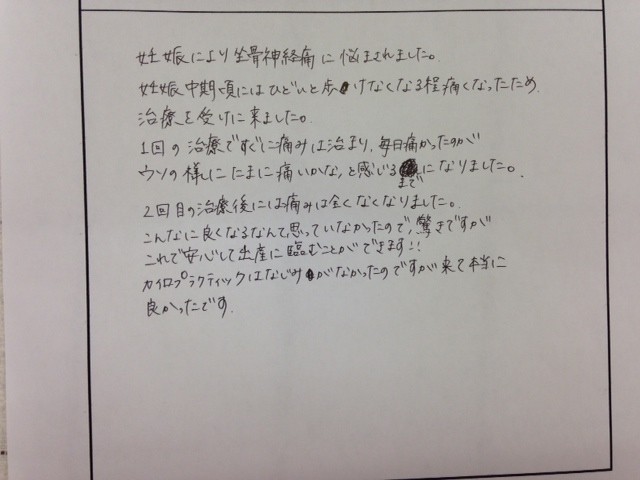 妊娠により坐骨神経痛に悩まされました。
妊娠中期頃にはひどいと歩けなくなる程痛くなったため、
治療を受けに来ました。
1回の治療ですぐに痛みは治まり、毎日痛かったのが
ウソの様にたまに痛いかな、と感じるまでになりました。
2回目の治療後には痛みは全くなくなりました。
こんなに良くなるなんて思っていなかったので、驚きですが
これで安心して出産に臨むことができます!!
カイロプラクティックはなじみがなかったのですが来て本当に
良かったです。